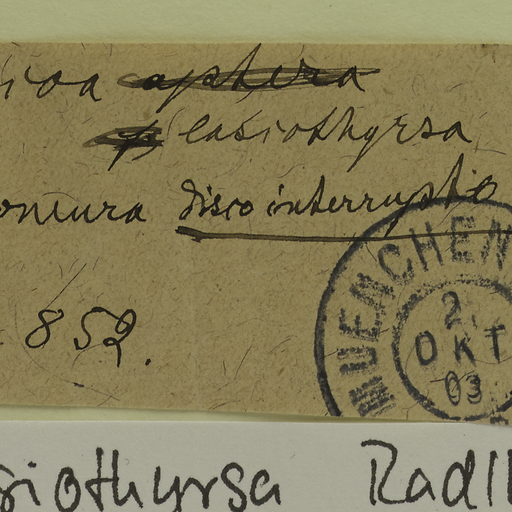 icoa aphera
lasiothyrsa
oneura disco interrupto
852.
MUENCHEN
2.
OKT
03
siothyrsa Radl